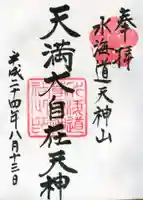 奉拝
水海道天神山
天満大自在天神
平成二十四年八月十三日